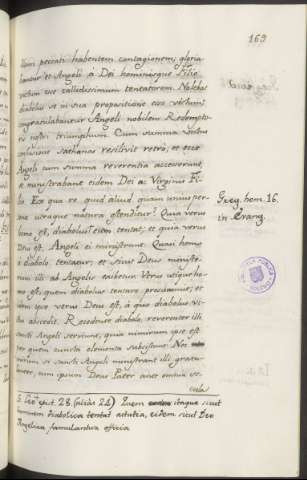 169
illam peccati habentem contagionem; gloria
bantur et Angeli a Dei hominisque Filio
victum esse callidissimum tentatorem. Nolebat
diabolus se in sua propositione esse victum;
congratulabantur Angeli nobilem Redempto
ris nostri triumphum. Cum summa vultus
confusione sathanas resilivit retrò; et
Angeli cum summa reverentia accesserunt,
et ministrabant eidem Dei ac Virginis Fi
lio. Ex qua re quid aliud quam unius per
sonae utraque natura ostenditur? Quia homo
est, diabolus eum tentat; et quia verus
Deus est Angeli ei ministrant. Quasi homo
a diabolo tentatur; et sicut Deus ministe
rium illi ab Angelis exibetur. Verus utique ho
mo est, quem diabolus tentare praesumit; et
idem ipse verus Deus est, a quo diabolus vi
ctus abscedit. Recedente diabolo, reverenter illi
sancti Angeli serviunt, quia nimirum ipse est
per quem cuncta elementa subsistunt. Nec
mirum si sancti Angeli ministrant illi gratu
lanter, cum ipsum Deus Pater ante omnia sae
cula
Greg. hom. 16.
in Evang.
S. Leo epist. 28 (alias 24) Quem itaque sicut
hominem diabolica tentat astutia, eidem sicut Deo
Angelica famulantur officia